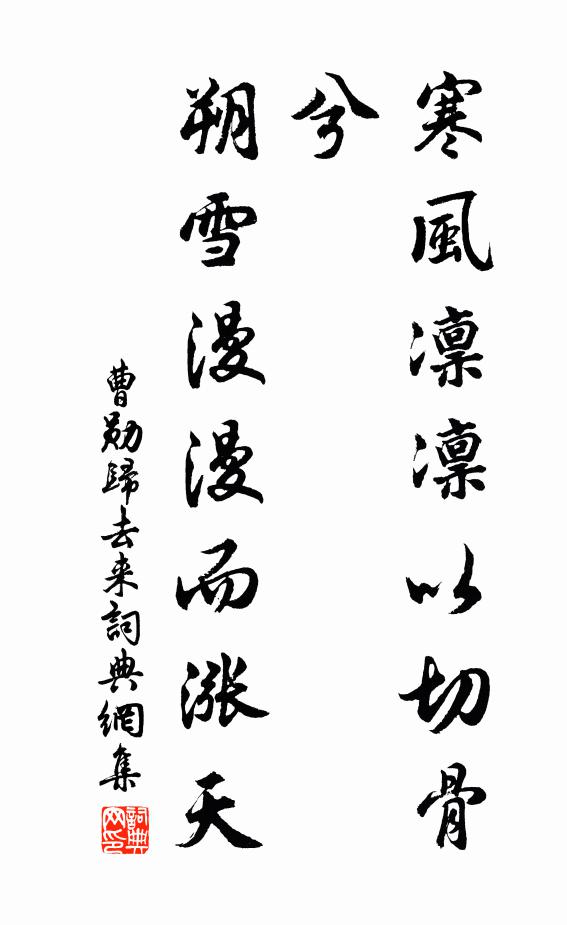 寒風凛凛以切骨
兮
朔雪漫漫而漲天
曹勛歸去来詞典網集
詞典網印